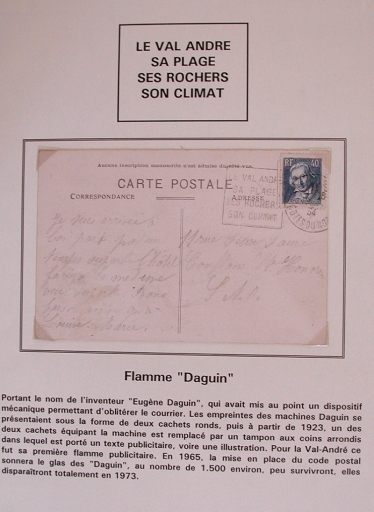 LE VAL ANDRE
SA PLAGE
SES ROCHERS
SON CLIMAT
Aucune inscription manuscrite n'est admise du côté vue
CARTE POSTALE
CORRESPONDANCE
ADRESSE
LE VAL ANDRE
SA PLAGE
SES ROCHERS
SON CLIMAT
RF 40
Flamme "Daguin"
Portant le nom de l'inventeur "Eugène Daguin", qui avait mis au point un dispositif
mécanique permettant d'oblitérer le courrier. Les empreintes des machines Daguin se
présentaient sous la forme de deux cachets ronds, puis à partir de 1923, un des
deux cachets équipant la machine est remplacé par un tampon aux coins arrondis
dans lequel est porté un texte publicitaire, voire une illustration. Pour la Val-André ce
fut sa première flamme publicitaire. En 1965, la mise en place du code postal
sonnera le glas des "Daguin", au nombre de 1.500 environ, peu survivront, elles
disparaîtront totalement en 1973.